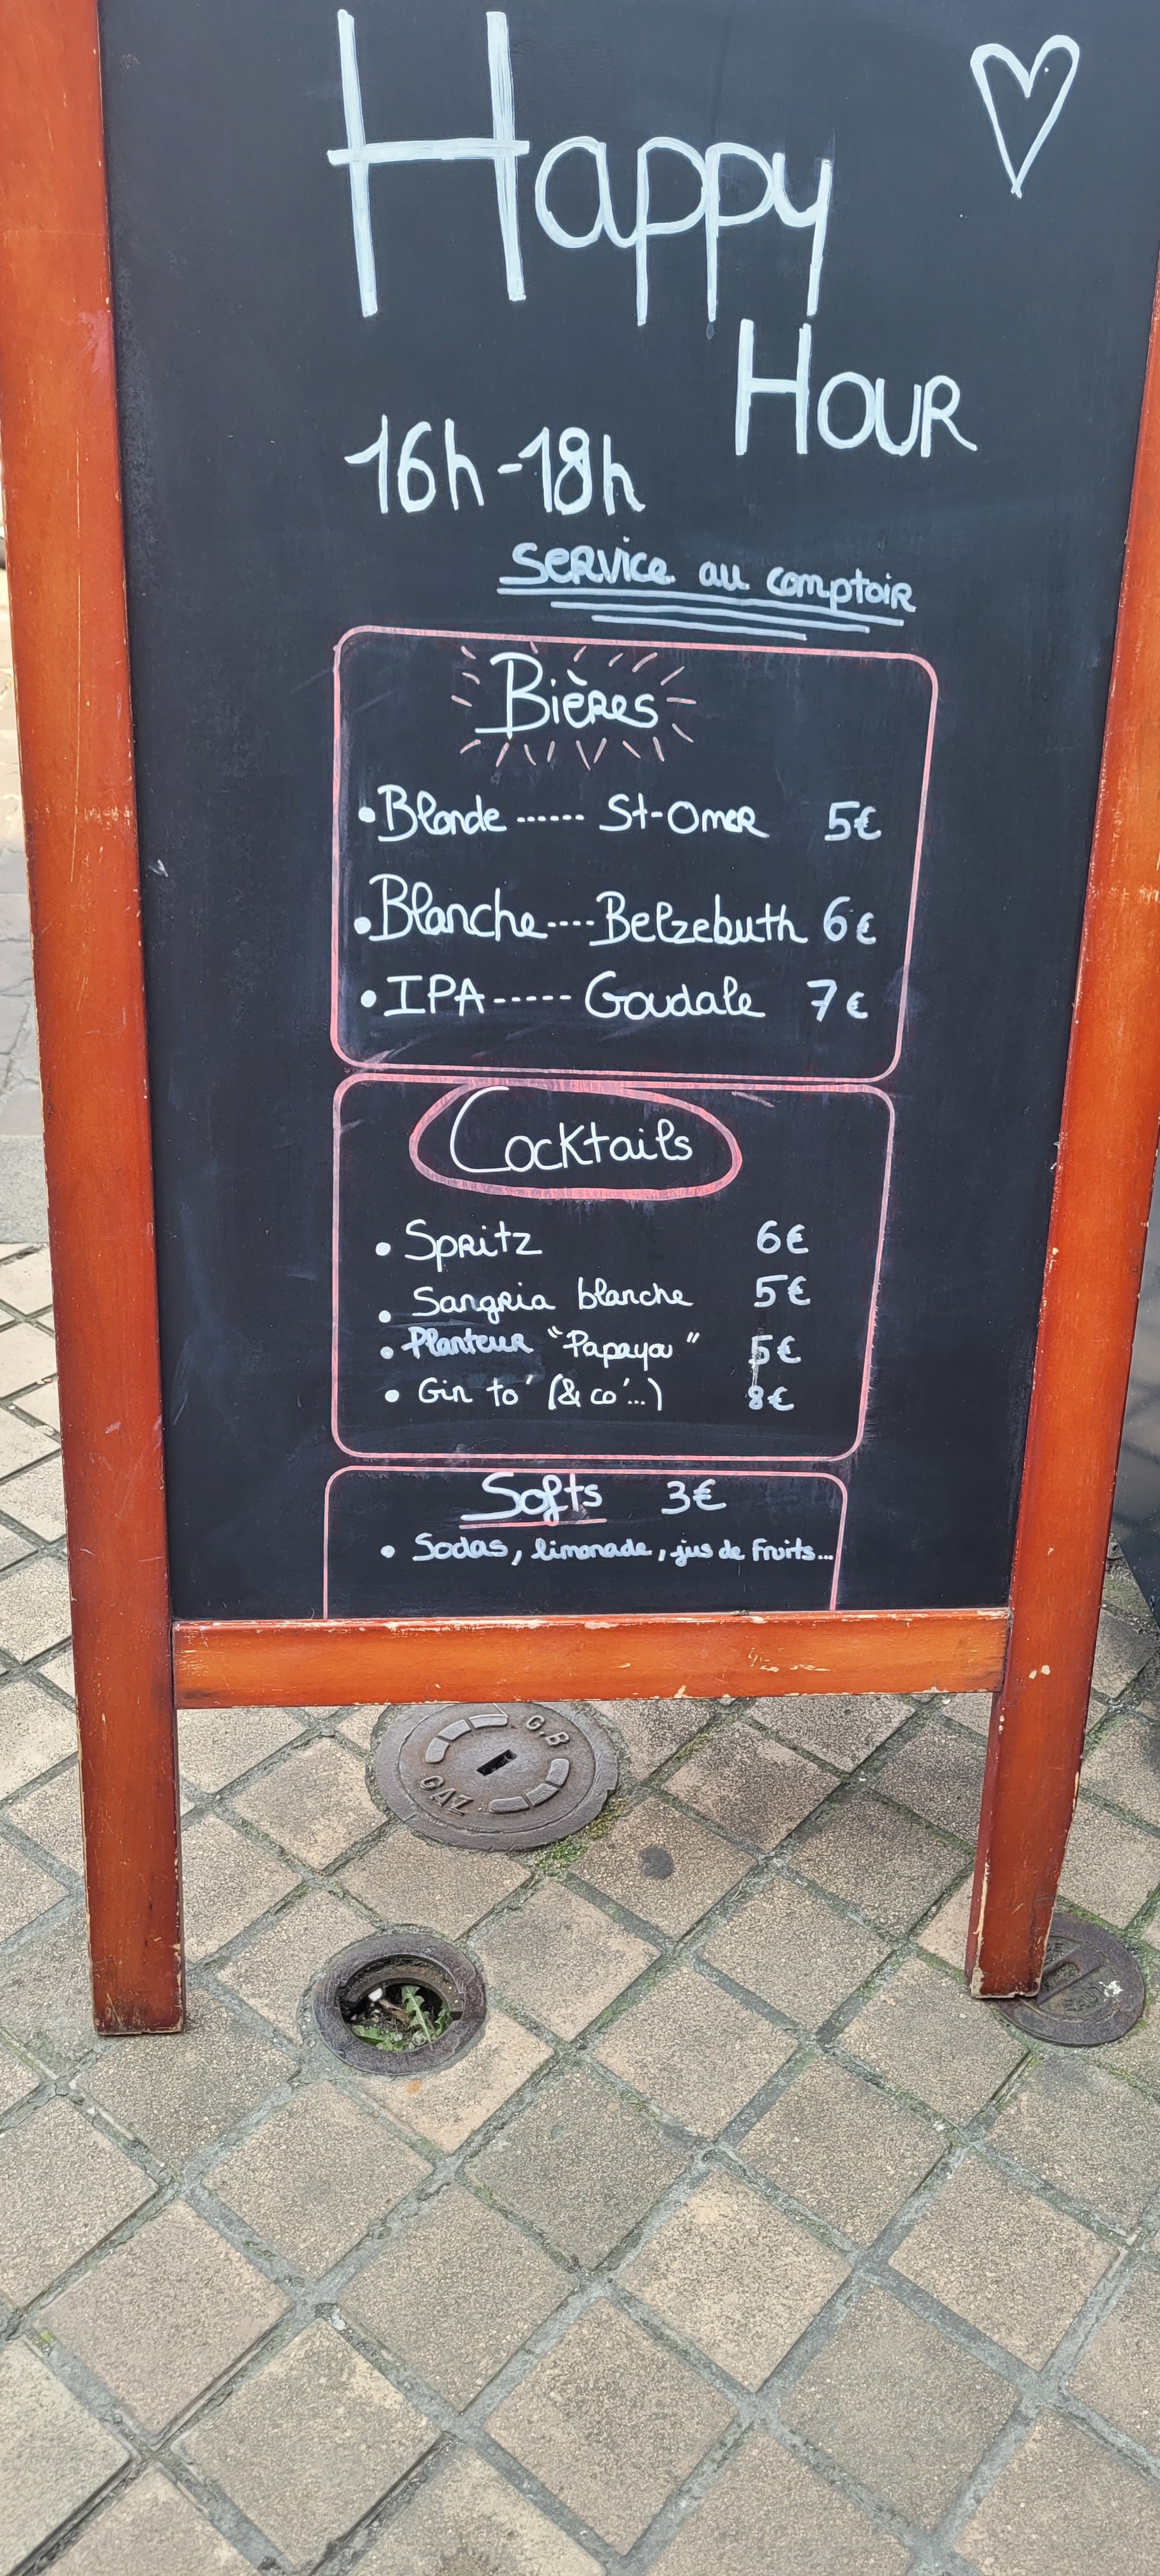 Happy
Hour
16h-18h
Service au comptoir
Bières
• Blonde ------ St-Omer 5€
• Blanche ---- Belzebuth 6€
• IPA ----- Goudale 7€
Cocktails
• Spritz 6€
• Sangria blanche 5€
• Planteur "Papaya" 5€
• Gin to' (& co'...) 8€
Softs 3€
• Sodas, limonade, jus de fruits...
G.B
GAZ
EAU